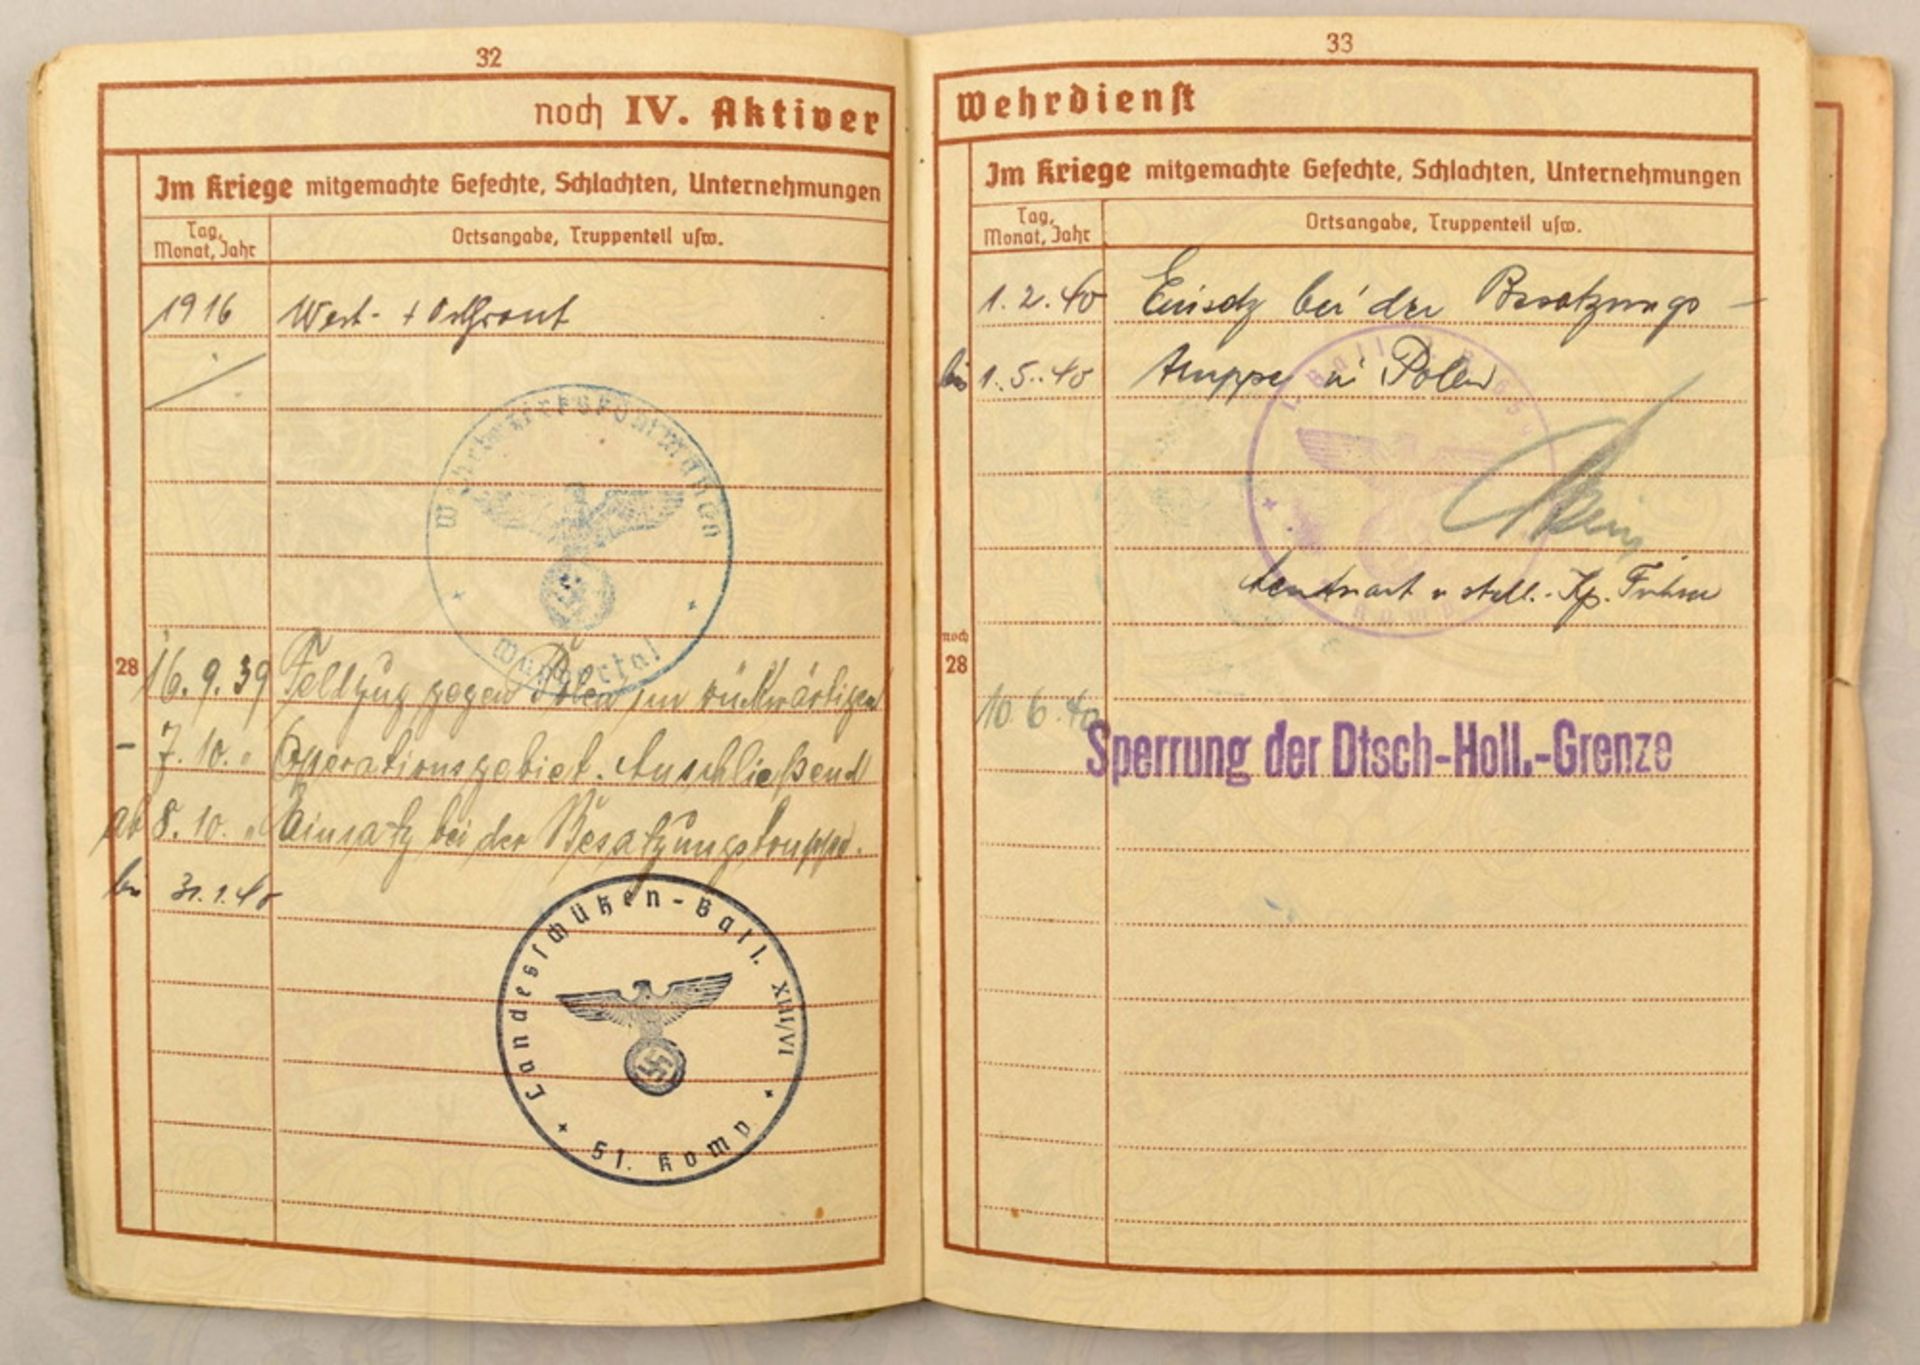 32
noch IV. Aktiver
Im Kriege mitgemachte Gefechte, Schlachten, Unternehmungen
Tag, Monat, Jahr
Ortsangabe, Truppenteil usw.
1916 West- + Ostfront
Wehrbezirkskommando
Wuppertal
28
16.9.39 Feldzug gegen Polen im rückwärtigen
- 7.10. " Operationsgebiet. Anschließend
ab 8.10. " Einsatz bei der Besatzungstruppe.
bis 31.1.40
Landesschützen-Batl. XIII/VI
51. Komp
33
Wehrdienst
Im Kriege mitgemachte Gefechte, Schlachten, Unternehmungen
Tag, Monat, Jahr
Ortsangabe, Truppenteil usw.
1.2.40 Einsatz bei der Besatzungs-
bis 1.5.40 truppe in Polen
Leutnant u. stell. Kp. Führer
noch
28
10.6.40 Sperrung der Dtsch-Holl.-Grenze